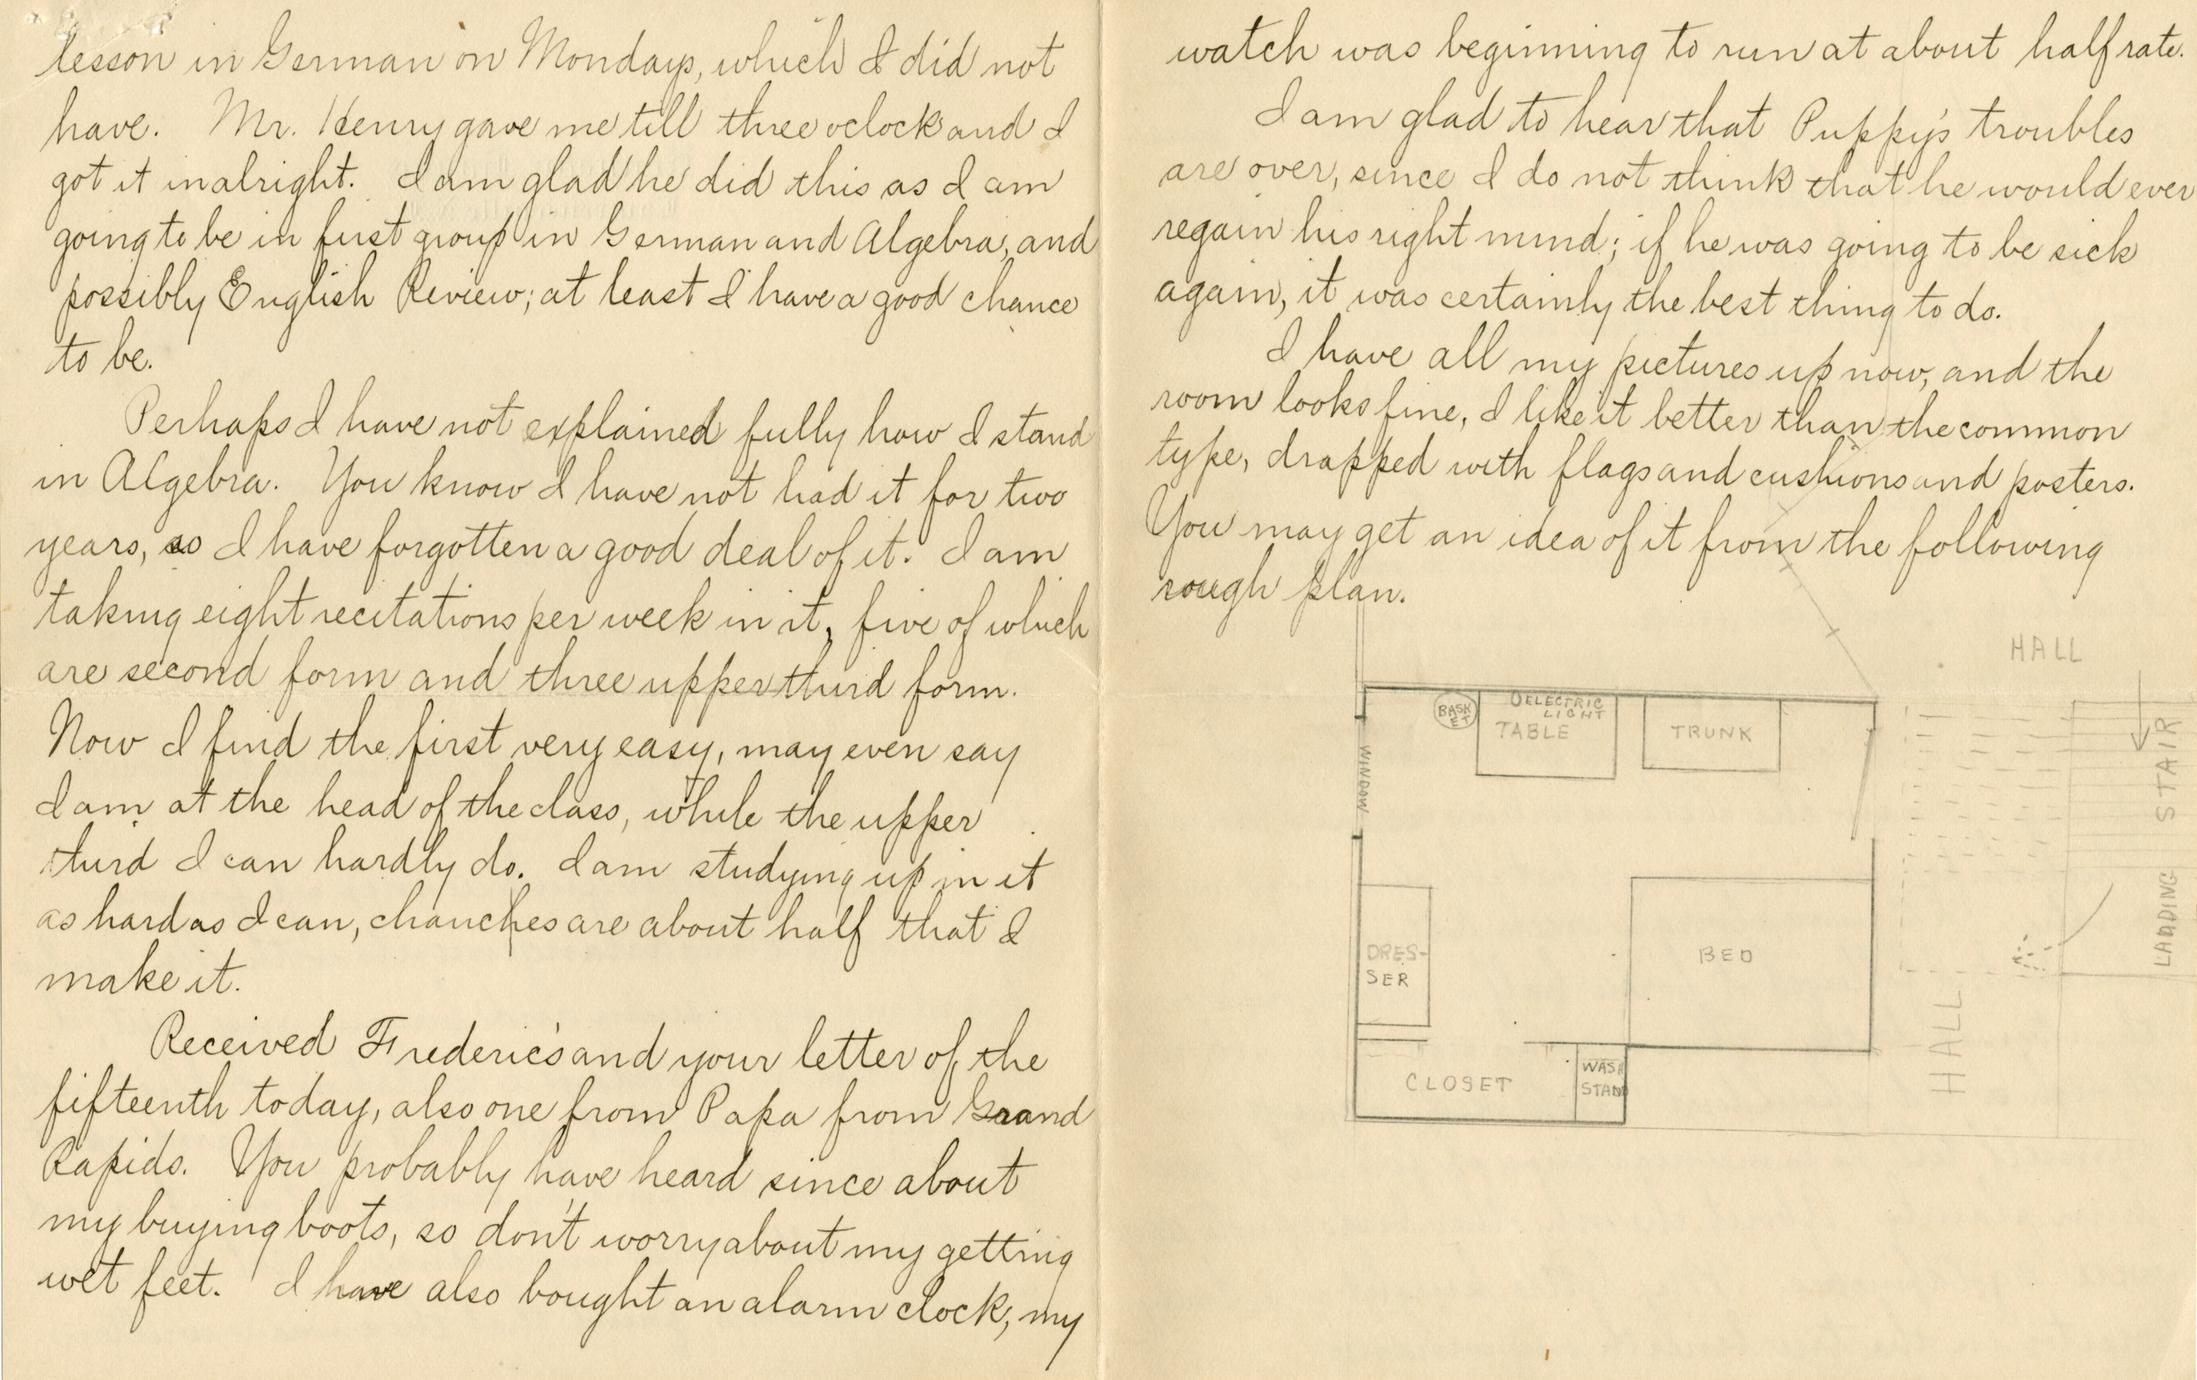 lesson in German on Mondays, which I did not
have. Mr. Henry gave me till three oclock and I
got it in alright. I am glad he did this as I am
going to be in first group in German and Algebra, and
possibly English Review; at least I have a good chance
to be.
Perhaps I have not explained fully how I stand
in Algebra. You know I have not had it for two
years, so I have forgotten a good deal of it. I am
taking eight recitations per week in it, five of which
are second form and three upper third form.
Now I find the first very easy, may even say
I am at the head of the class, while the upper
third I can hardly do. I am studying up in it
as hard as I can, chanches are about half that I
make it.
Received Frederic's and your letter of the
fifteenth today, also one from Papa from Grand
Rapids. You probably have heard since about
my buying boots, so don't worry about my getting
wet feet. I have also bought an alarm clock, my
watch was beginning to run at about half rate.
I am glad to hear that Puppy's troubles
are over, since I do not think that he would ever
regain his right mind; if he was going to be sick
again, it was certainly the best thing to do.
I have all my pictures up now, and the
room looks fine, I like it better than the common
type, drapped with flags and cushions and posters.
You may get an idea of it from the following
rough plan.
HALL
BASKET
ELECTRIC
LIGHT
TABLE
TRUNK
WINDOW
STAIR
LANDING
DRES-
SER
BED
HALL
CLOSET
WASH
STAND